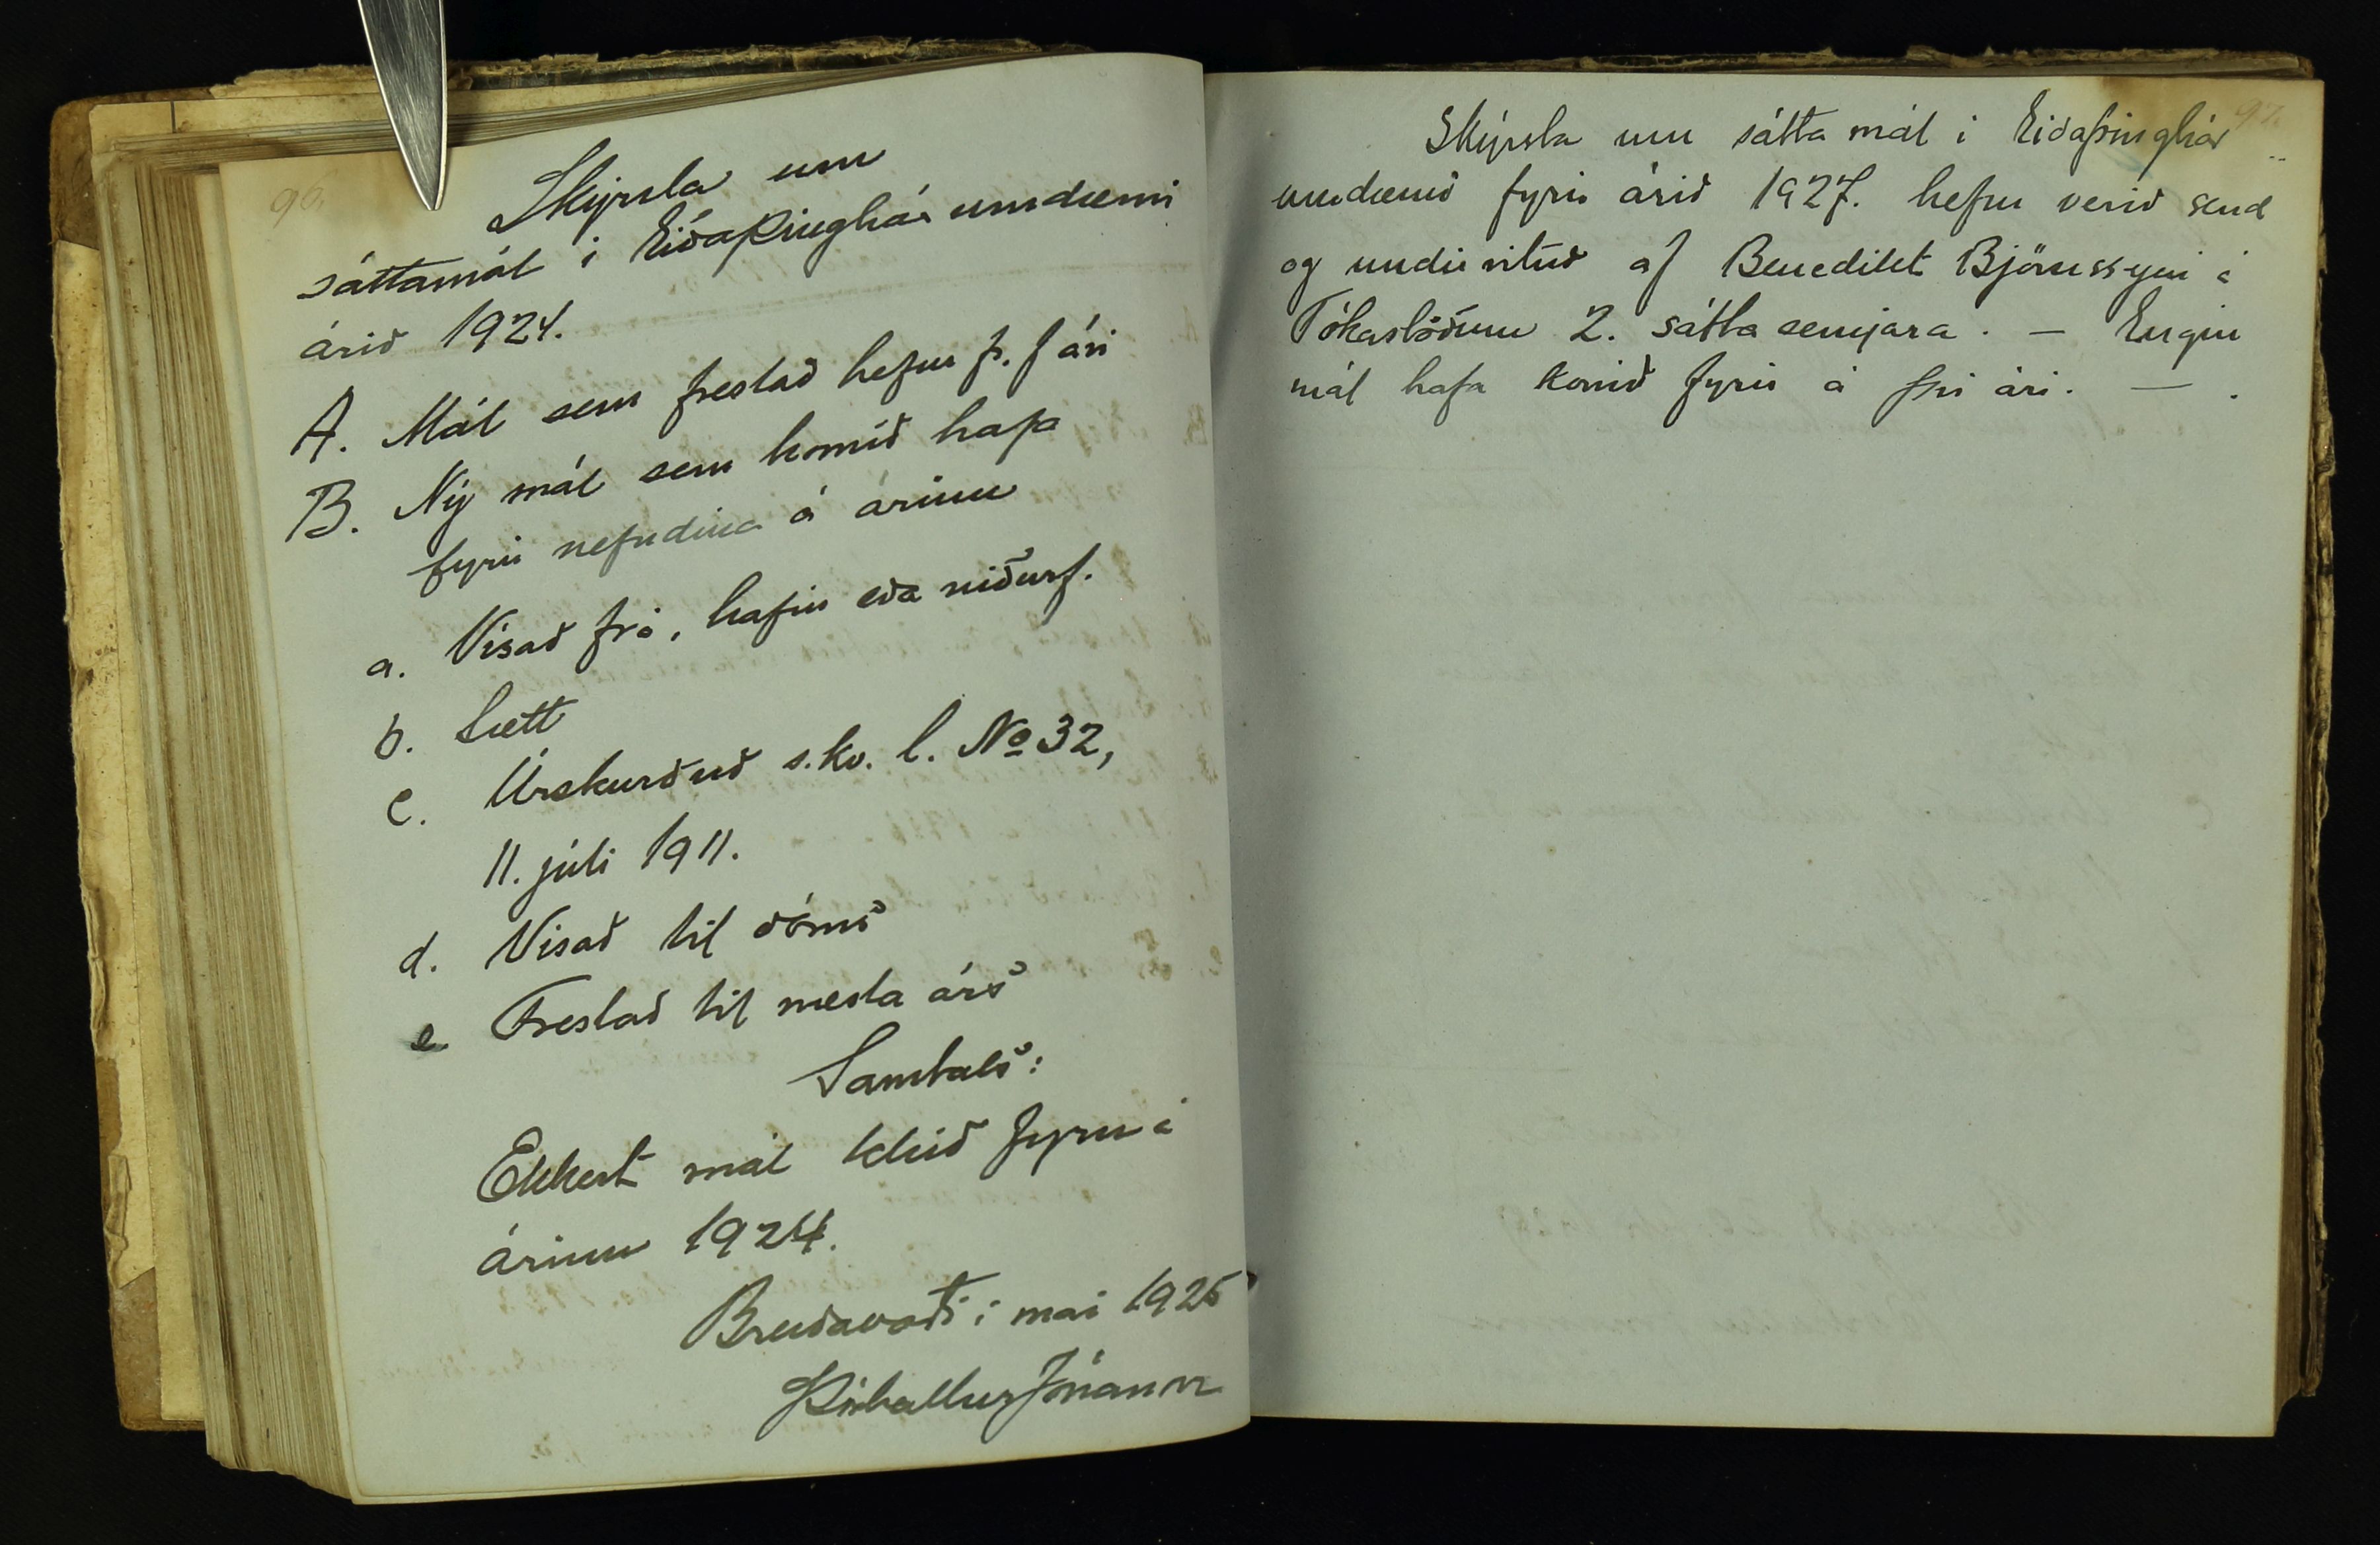 96.
Skýrsla um
sáttamál í Eiðaþinghár umdæmi
árið 1924.
A. Mál sem frestað hefur fr. f ári
B. Ný mál sem komið hafa
fyrir nefndina á árinu
a. Vísað frá, hafin eða niðurf.
b. Sætt
c. Úrskurðuð s.kv. l. No 32,
11. júlí 1911.
d. Vísað til dóms
e Frestað til næsta árs
Samtals:
Ekkert mál fyrir á
árinu 1924.
Breiðavaði í maí 1925
Þórhallur Jónasson
97.
Skýrsla um sátta mál í Eiðaþinghár
umdæmi fyrir árið 1927. hefur verið send
og undirrituð af Benedikt Björnssyni á
Tókastöðum 2. sátta semjara. — Engin
mál hafa komið fyrir á því ári. — .